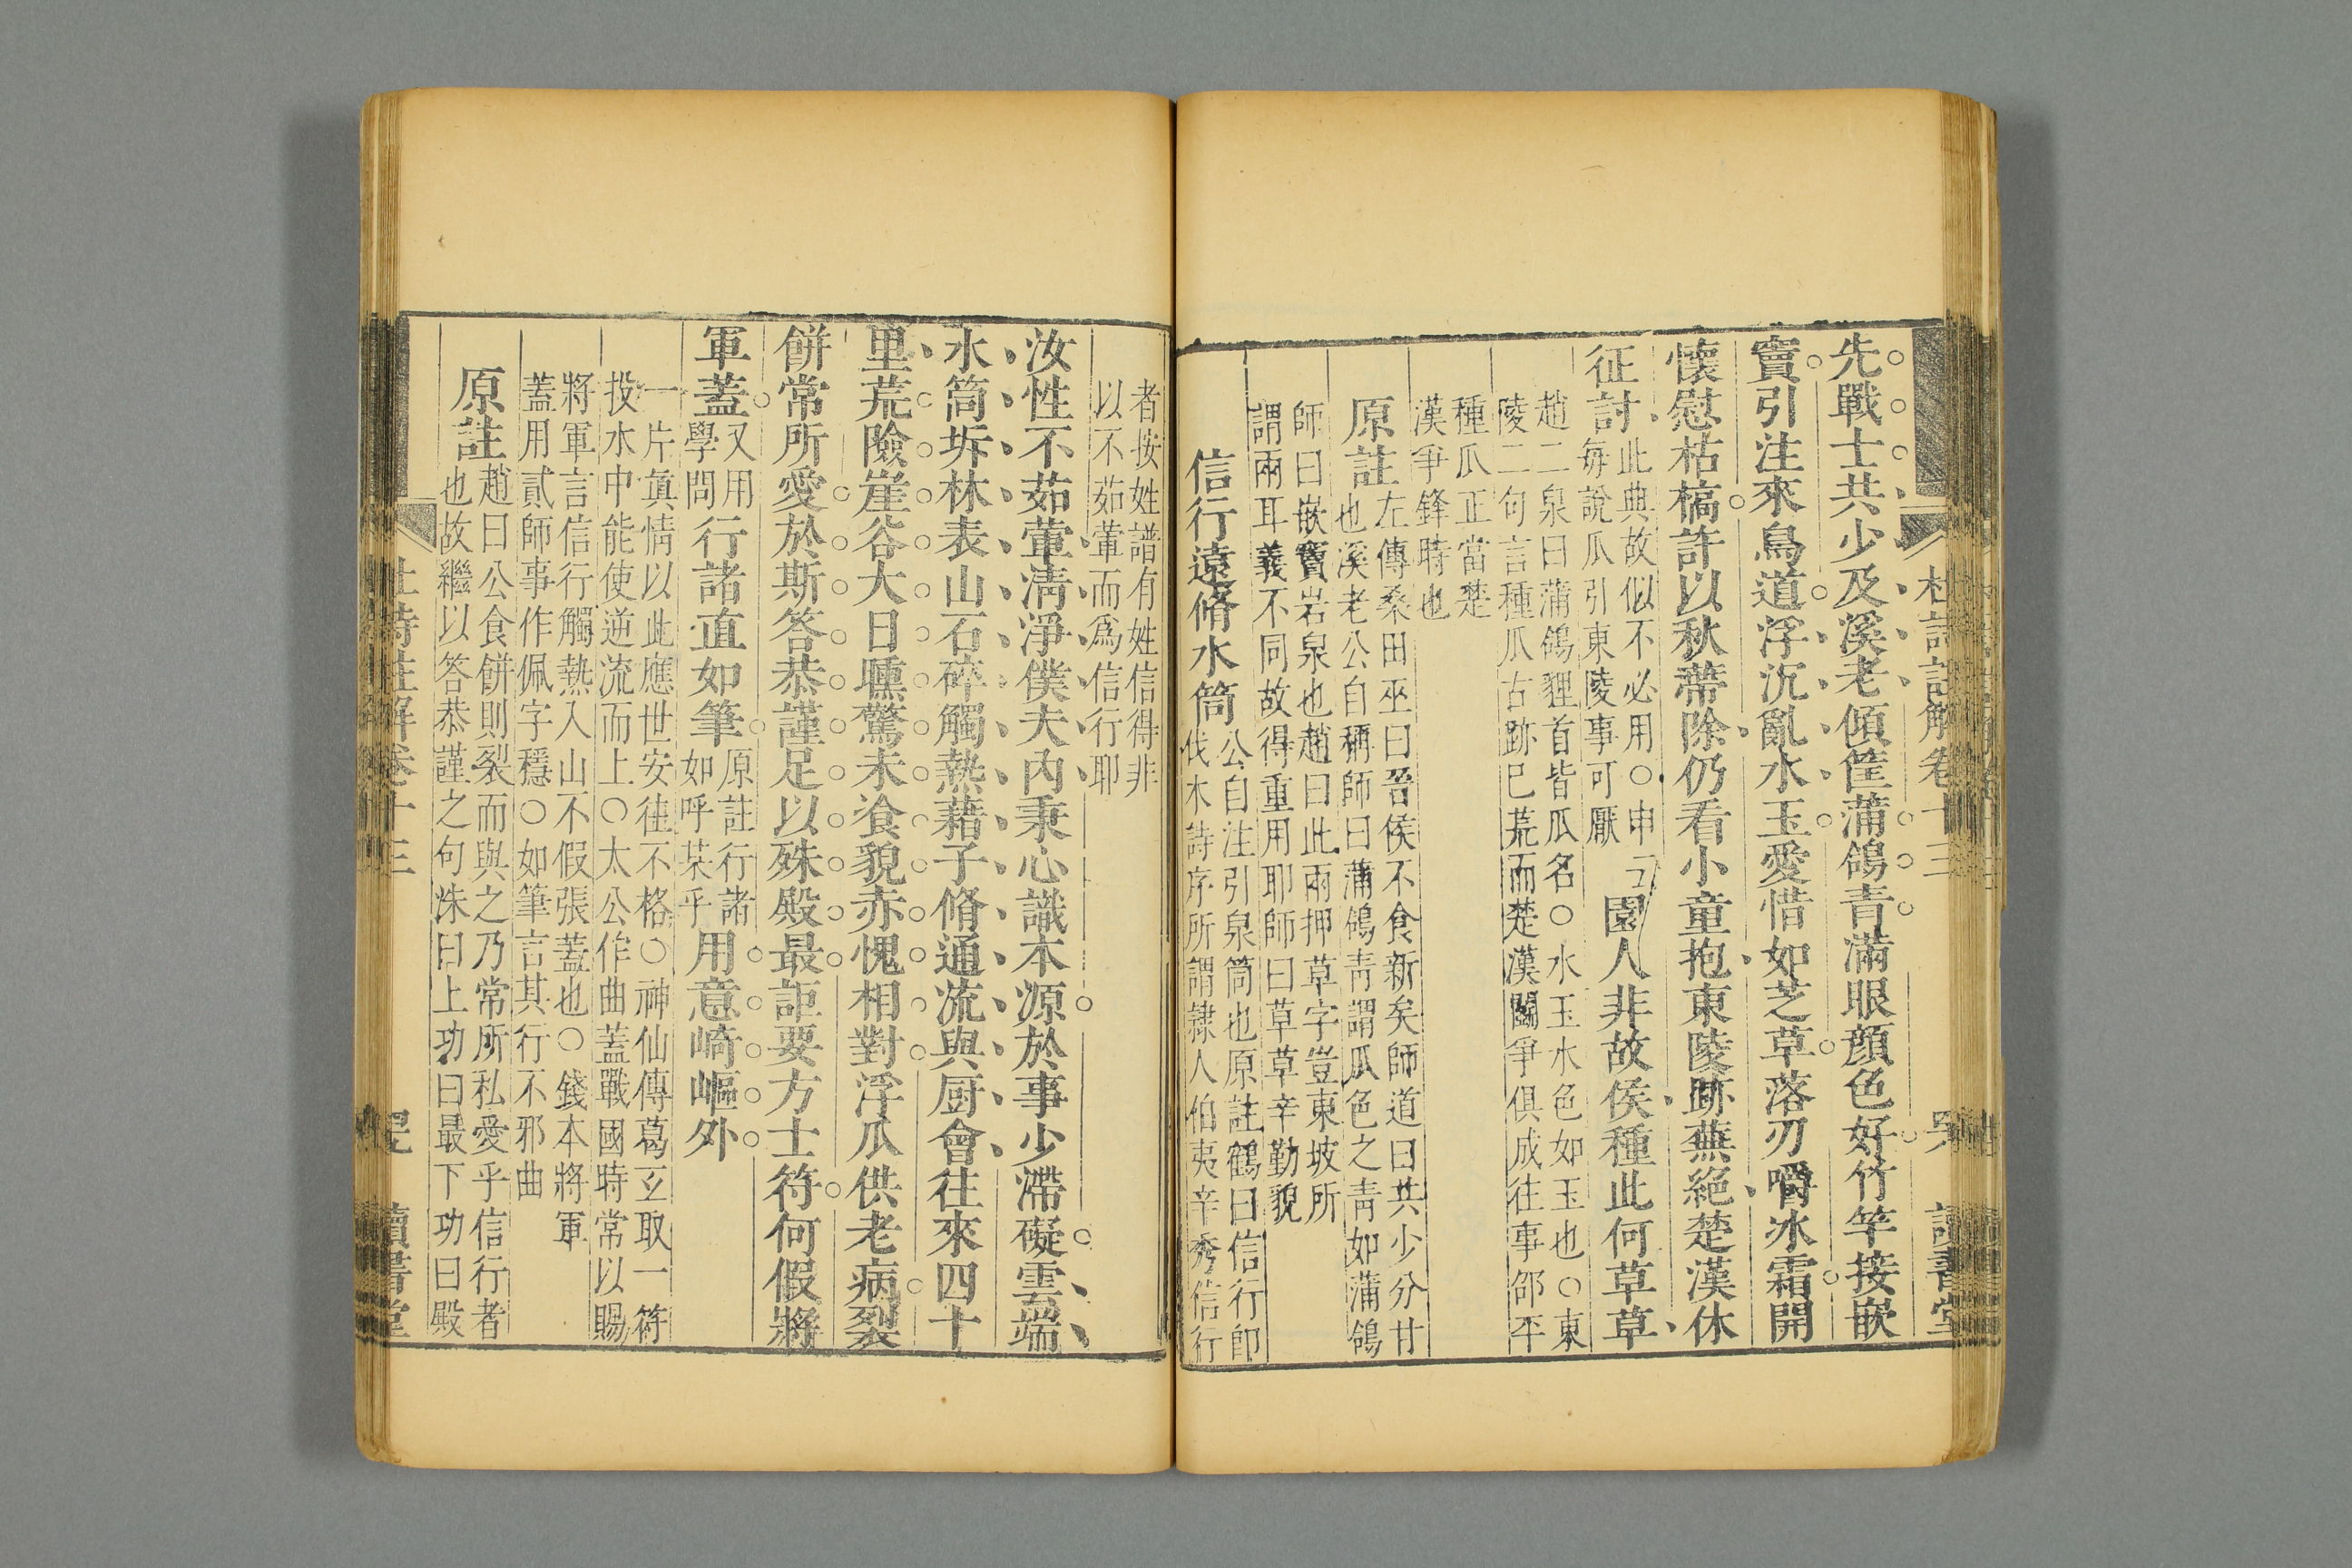 杜詩註解卷十三
讀書堂
先戰士共少及溪老傾筐蒲鴿青滿眼顏色好竹竿接嵌
竇引注來鳥道浮沉亂水玉愛惜如芝草落刃嚼冰霜開
懷慰枯槁許以秋蒂除仍看小童抱東陵跡蕪絕楚漢休
征討此典故似不必用○申
每說瓜引東陵事可厭
園人非故侯種此何草草
趙二泉曰蒲鴿貍首皆瓜名○水玉水色如玉也○東
陵二句言種瓜古跡已荒而楚漢鬭爭俱成往事邵平
種瓜正當楚
漢爭鋒時也
原註左傳桑田巫曰晉侯不食新矣師道曰共少分甘
也溪老公自稱師曰蒲鴿青謂瓜色之青如蒲鴿
師曰嵌竇岩泉也趙曰此兩押草字豈東坡所
謂兩耳義不同故得重用耶師曰草草辛勤貌
信行遠脩水筒公自注引泉筒也原註鶴曰信行卽
伐木詩序所謂隸人伯夷辛秀信行
者按姓譜有姓信得非
以不茹葷而爲信行耶
汝性不茹葷淸淨僕夫內秉心識本源於事少滯礙雲端
水筒坼林表山石碎觸熱藉子脩通流與厨會往來四十
里荒險崖谷大日曛驚未飡貌亦愧相對浮瓜供老病裂
餅常所愛於斯答恭謹足以殊殿最詎要方士符何假將
軍蓋又用
學問行諸直如筆原註行諸
如呼某乎用意崎嶇外
一片眞情以此應世安往不格○神仙傳葛玄取一符
投水中能使逆流而上○太公作曲蓋戰國時常以賜
將軍言信行觸熱入山不假張蓋也○錢本將軍
蓋用貳師事作佩字穩○如筆言其行不邪曲
原註趙曰公食餅則裂而與之乃常所私愛乎信行者
也故繼以答恭謹之句洙曰上功曰最下功曰殿
杜詩註解卷十三
讀書堂